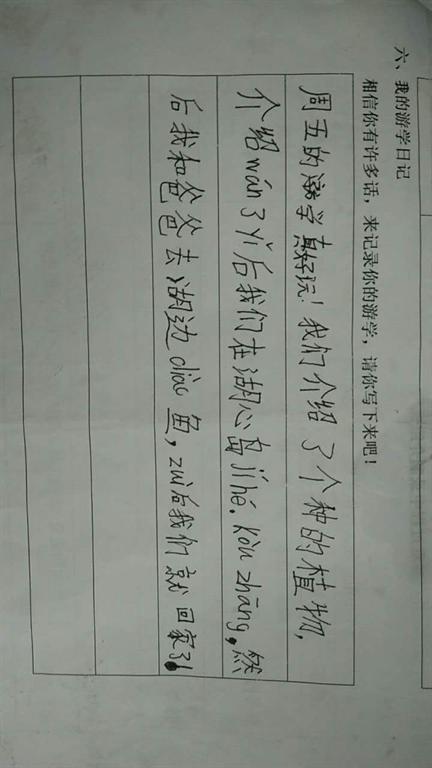 六、我的游学日记
相信你有许多话，来记录你的游学，请你写下来吧！
周五的游学真好玩！我们介绍了个种的植物，
介绍wán了yǐ后我们在湖心岛jíhé．kòu zhāng，然
后我和爸爸去湖边diào鱼，zuì后我们就回家了！